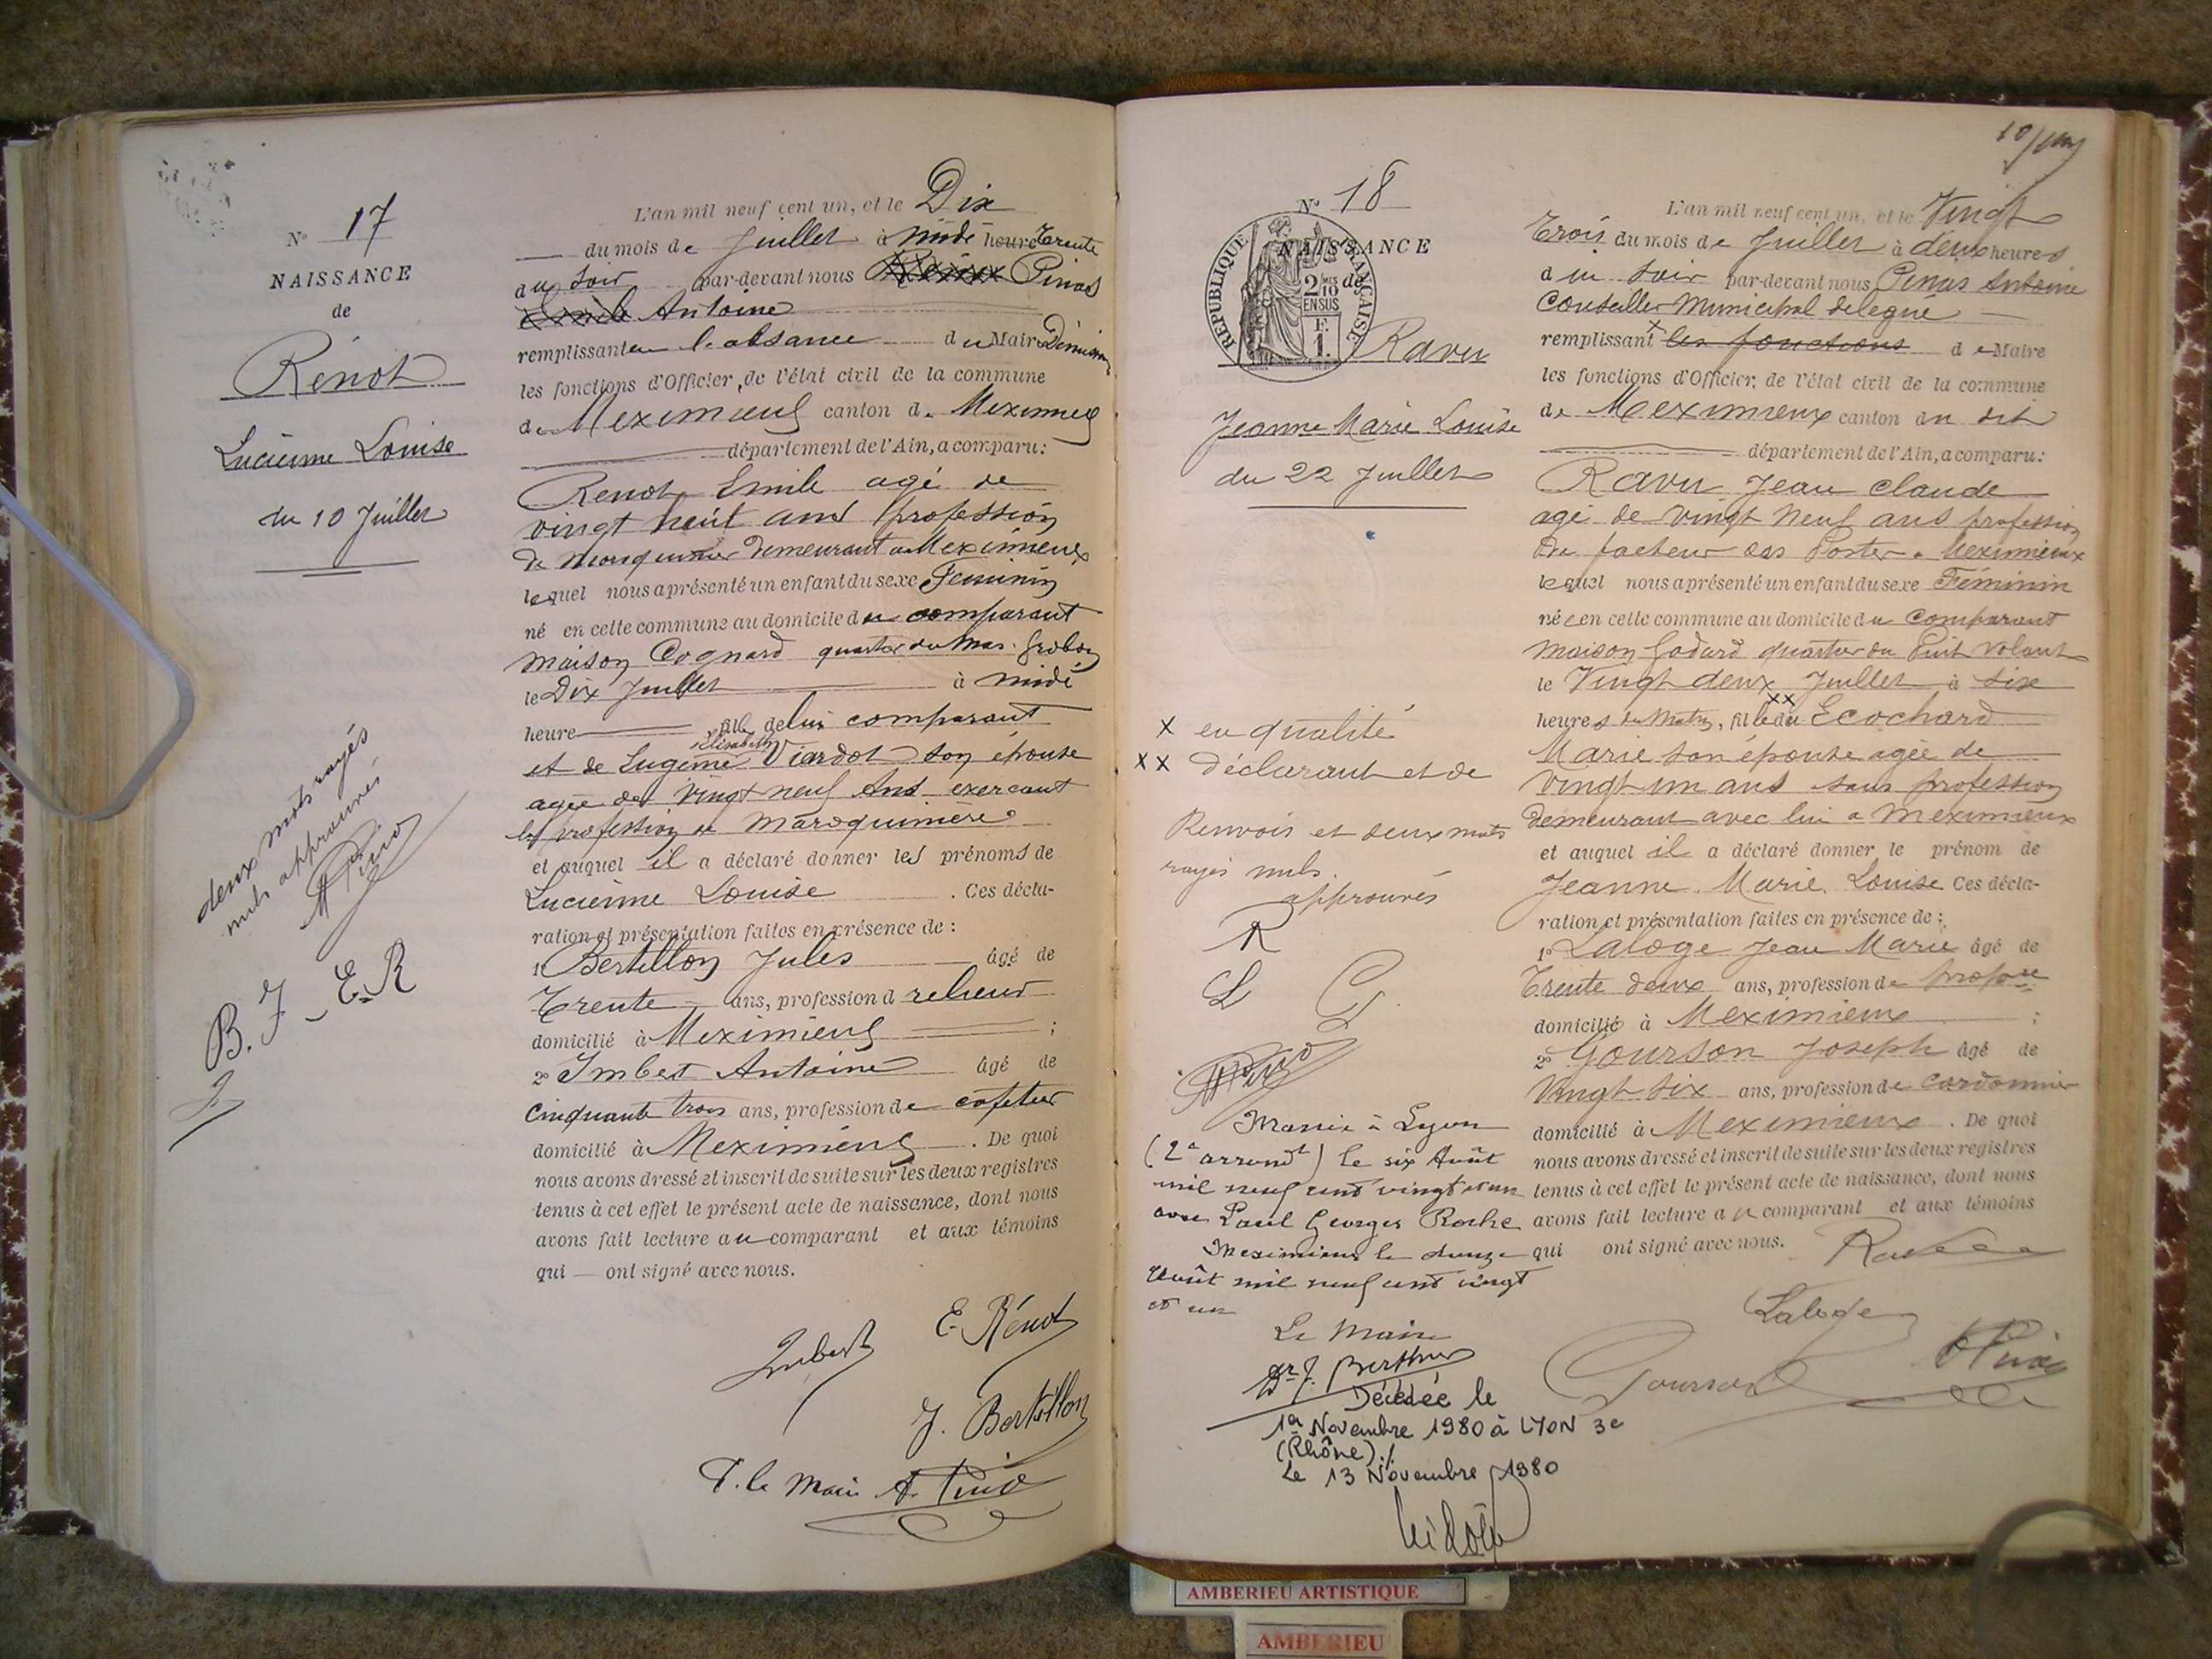 N° 17
NAISSANCE
de
Rénot
Lucienne Louise
du 10 Juillet
deux mots rayés
nuls approuvés
A Pinos
B. J - E. R
L'an mil neuf cent un, et le Dix
du mois de Juillet à midi heure trente
du soir par-devant nous Pinos
Antoine
remplissant en l'absance du Maire Démission
les fonctions d'Officier de l'état civil de la commune
de Meximieux canton de Meximieux
département de l'Ain, a comparu:
Renot Emile agé de
vingt huit ans profession
de Maroquinier demeurant a Meximieux
lequel nous a présenté un enfant du sexe Feminin
né en cette commune au domicile du comparant
maison Cognard quartier du Mas Grobon
le Dix Juillet à midi
heure fille de lui comparant
et de Eugénie Elisabeth Viardot son épouse
agée de vingt neuf Ans exercant
la profession de maroquinière
et auquel il a déclaré donner les prénoms de
Lucienne Louise . Ces décla-
ration et présentation faites en présence de :
1° Bertillon Jules âgé de
Trente ans, profession d relieur
domicilié à Meximieux ;
2° Imbert Antoine âgé de
Cinquante trois ans, profession de cafetier
domicilié à Meximieux . De quoi
nous avons dressé et inscrit de suite sur les deux registres
tenus à cet effet le présent acte de naissance, dont nous
avons fait lecture au comparant et aux témoins
qui — ont signé avec nous.
Imbert E. Rénot
J. Bertillon
P. le Maire A. Pinos
N° 18
REPUBLIQUE FRANÇAISE
NAISSANCE
de
2/10 MES
EN SUS
F.
1.
Ravu
Jeanne Marie Louise
du 22 Juillet
X en qualité
XX déclarant et de
Renvois et deux mots
rayés nuls.
approuvés
R
L G
Mariée à Lyon
(2e arrondt) le six Août
mil neuf cent vingt et un
avec Paul Georges Roche
Meximieux le douze
Août mil neuf cent vingt
et un
Le Maire
Dr J. Berthier
Décédée le
1er Novembre 1980 à LYON 3e
(Rhône)./.
Le 13 Novembre 1980
L'an mil neuf cent un, et le Vingt
Trois du mois de Juillet à deux heures
du soir par-devant nous Pinos Antoine
Conseiller Municipal delegué
remplissant X les fonctions de Maire
les fonctions d'Officier de l'état civil de la commune
de Meximieux canton du dit
département de l'Ain, a comparu:
Ravu Jean Claude
agé de vingt neuf ans profession
de facteur des Postes a Meximieux
lequel nous a présenté un enfant du sexe Féminin
née en cette commune au domicile du comparant
maison Godard quartier du Puit Volant
le Vingt deux Juillet à six
heures du Matin, fille XX du Ecochard
Marie son épouse agée de
vingt un ans sans profession
demeurant avec lui a Meximieux
et auquel il a déclaré donner le prénom de
Jeanne Marie Louise Ces décla-
ration et présentation faites en présence de :
1° Laloge Jean Marie âgé de
Trente deux ans, profession de propre
domicilié à Meximieux ;
2° Gourson Joseph âgé de
Vingt six ans, profession de cordonnier
domicilié à Meximieux . De quoi
nous avons dressé et inscrit de suite sur les deux registres
tenus à cet effet le présent acte de naissance, dont nous
avons fait lecture au comparant et aux témoins
qui ont signé avec nous. Ravu
Laloge
Gourson A Pinos
AMBERIEU ARTISTIQUE
AMBERIEU